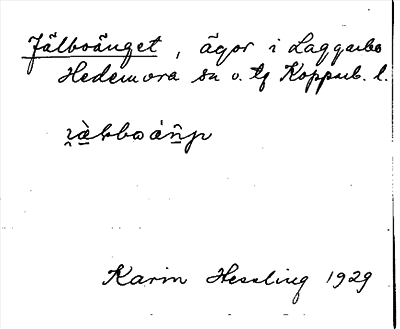 Jälboänget, ägor i Laggarbo
Hedemora sn o. tg Kopparb. l.
Karin Hessling 1929